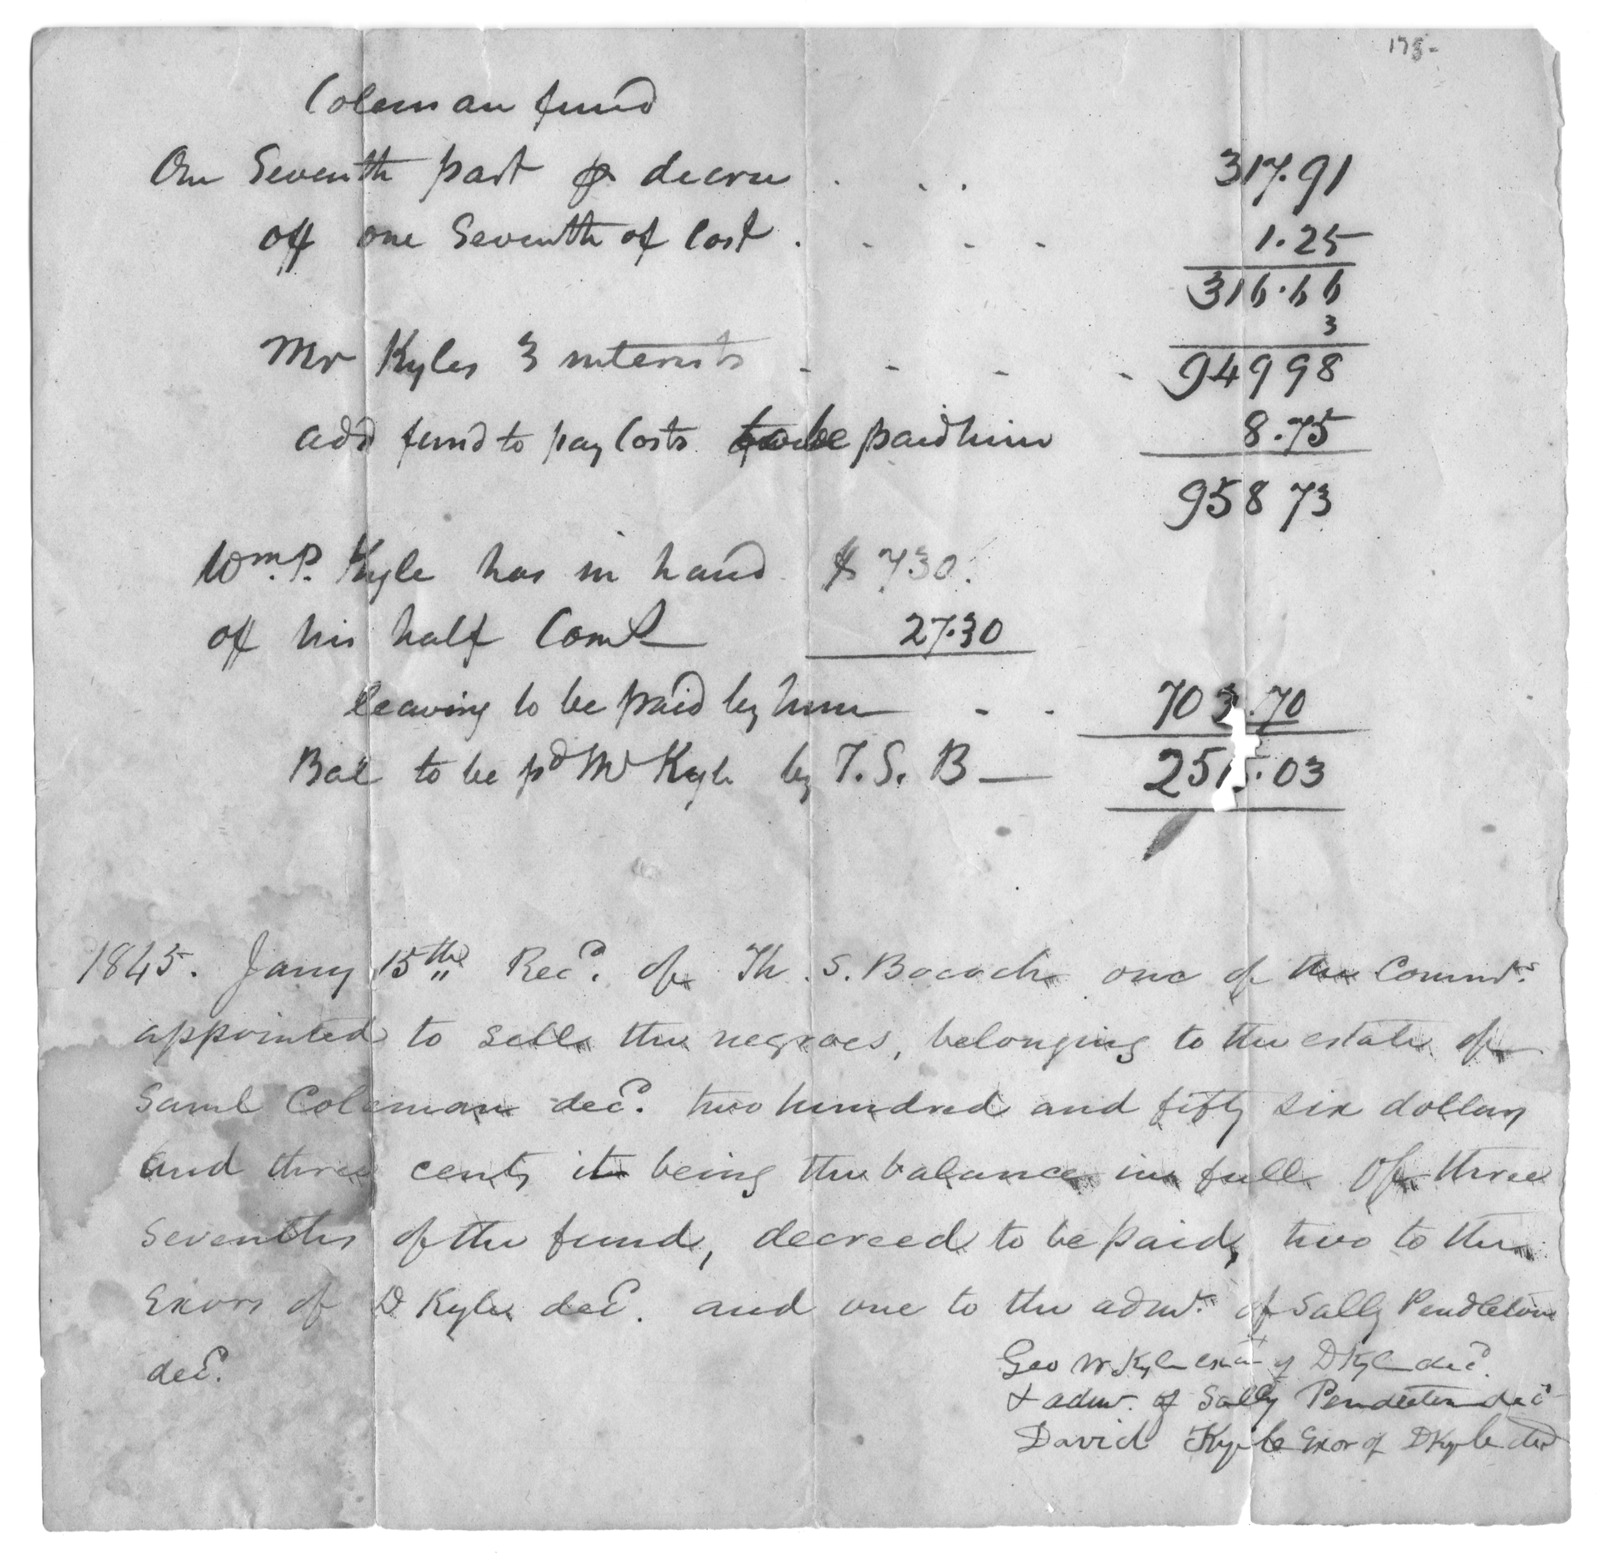 175-
Coleman fund
One Seventh part ⅌ decree . . . 317.91
off one Seventh of Cost . - - - 1.25
316.66
3
Mr Kyles 3 interests - - - - 94998
add fund to pay Costs to be paid him 8.75
958 73
Wm. P. Kyle has in hand $ 730.
off his half Coms 27.30
leaving to be paid by him - - 703.70
Bal to be pd Mr Kyle by T. S. B — 255.03
1845. Jany 15th Recd. of Th. S. Bocock one of the Commrs.
appointed to sell the negroes, belonging to the estate of
Saml Coleman decd. two hundred and fifty six dollars
and three cents it being the balance in full of three
Sevenths of the fund, decreed to be paid, two to the
Exors of D Kyle decd. and one to the admr. of Sally Pendleton
decd.
Geo W Kyle exor of D Kyle decd.
& admr. of Sally Pendleton decd
David Kyle Exor of D Kyle decd